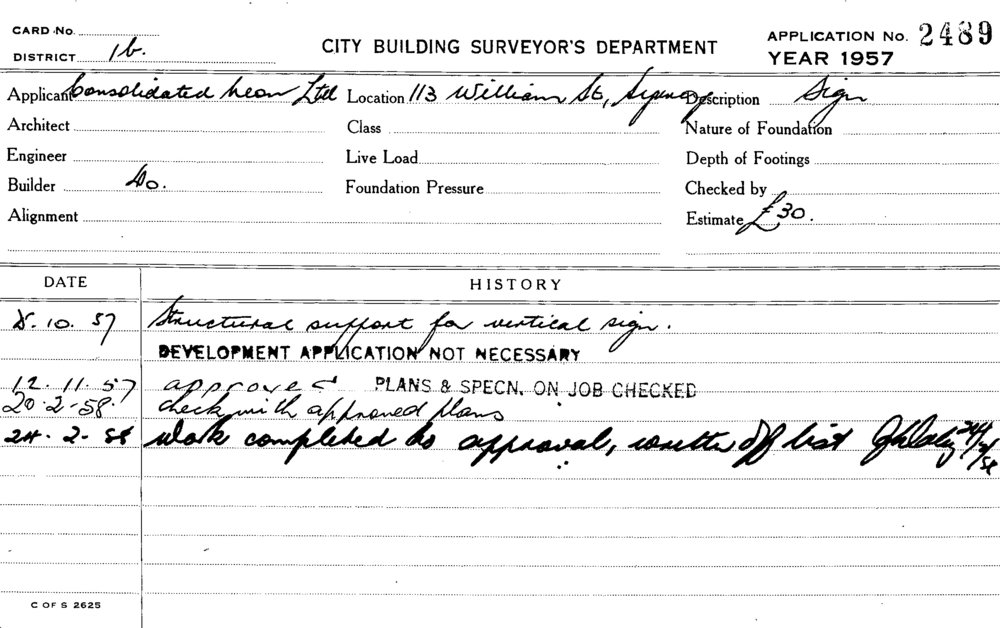 CARD No.
DISTRICT 1b.
CITY BUILDING SURVEYOR'S DEPARTMENT
APPLICATION No. 2489
YEAR 1957
Applicant Consolidated Neon Ltd Location 113 William St, Sydney Description Sign
Architect Class Nature of Foundation
Engineer Live Load Depth of Footings
Builder Do. Foundation Pressure Checked by
Alignment Estimate £30.
DATE HISTORY
8.10.57 Structural support for vertical sign.
DEVELOPMENT APPLICATION NOT NECESSARY
12.11.57 approved PLANS & SPECN. ON JOB CHECKED
20-2-58. check with approved plans
24.2-58 Work completed to approval, written off list 24/2/58
C OF S 2625